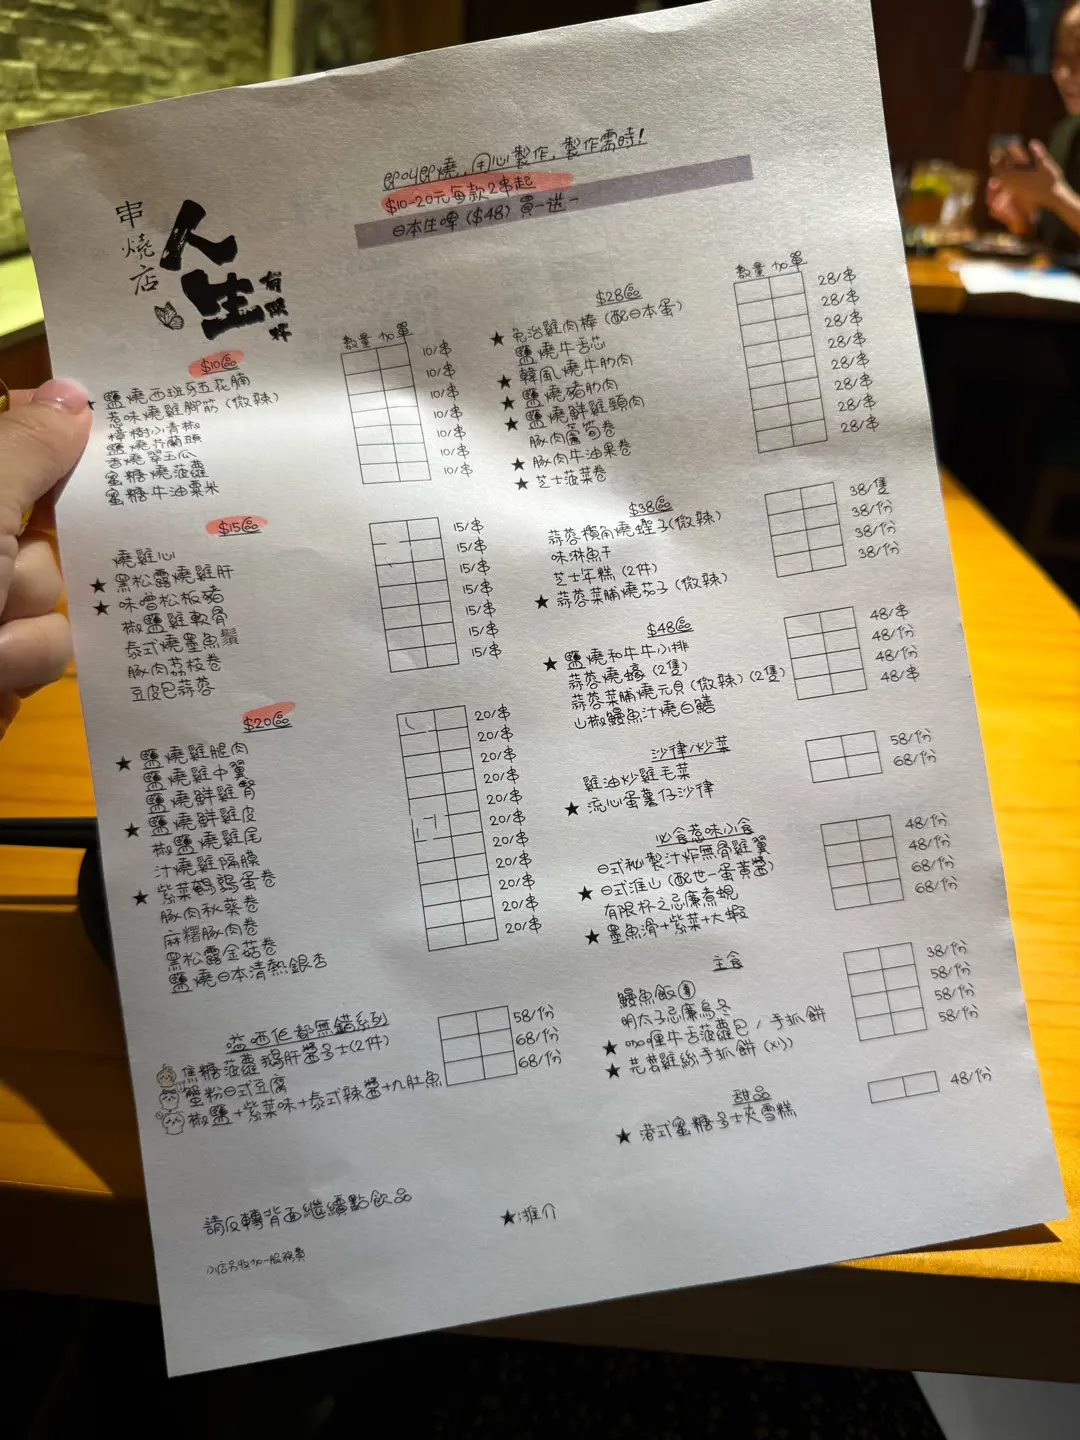 即叫即燒，用心製作，製作需時！
$10-20元每款2串起
日本生啤（$48）買一送一
串燒店
人生
有限杯
$10區
數量 加單
★ 鹽燒西班牙五花腩 10/串
惹味燒雞腳筋（微辣） 10/串
樟樹小青椒 10/串
鹽燒芥蘭頭 10/串
香燒翠玉瓜 10/串
蜜糖燒菠蘿 10/串
蜜糖牛油粟米
$15區
燒雞心 15/串
★ 黑松露燒雞肝 15/串
★ 味噌松板豬 15/串
椒鹽雞軟骨 15/串
泰式燒墨魚鬚 15/串
豚肉荔枝卷 15/串
豆皮包蒜蓉 15/串
$20區
★ 鹽燒雞腿肉 20/串
鹽燒雞中翼 20/串
鹽燒鮮雞腎 20/串
★ 鹽燒鮮雞皮 20/串
椒鹽燒雞尾 20/串
汁燒雞隔膜 20/串
★ 紫菜鵪鶉蛋卷 20/串
豚肉秋葵卷 20/串
麻糬豚肉卷 20/串
黑松露金菇卷 20/串
鹽燒日本清熱銀杏 20/串
嗌西佢都無錯系列
焦糖菠蘿鵝肝醬多士(2件) 58/份
蟹粉日式豆腐 68/份
椒鹽+紫菜味+泰式辣醬+九肚魚 68/份
請反轉背面繼續點飲品
小店另收加一服務費
$28區
數量 加單
★ 免治雞肉棒（配日本蛋） 28/串
鹽燒牛舌芯 28/串
★ 韓風燒牛肋肉 28/串
★ 鹽燒豬肋肉 28/串
★ 鹽燒鮮雞頸肉 28/串
豚肉露筍卷 28/串
★ 豚肉牛油果卷 28/串
★ 芝士菠菜卷 28/串
$38區
蒜蓉檳角燒蟶子(微辣) 38/隻
味淋魚干 38/份
芝士年糕（2件） 38/份
★ 蒜蓉菜脯燒茄子（微辣） 38/份
$48區
★ 鹽燒和牛牛小排 48/串
蒜蓉燒蠔（2隻） 48/份
蒜蓉菜脯燒元貝（微辣）（2隻） 48/份
山椒鰻魚汁燒白鱔 48/串
沙律/炒菜
雞油炒雞毛菜 58/份
★ 流心蛋薯仔沙律 68/份
必食惹味小食
日式秘製汁炸無骨雞翼 48/份
★ 日式淮山（配世一蛋黃醬） 48/份
有限杯之忌廉煮蜆 68/份
★ 墨魚滑+紫菜+大蝦 68/份
主食
鰻魚飯 38/份
明太子忌廉烏冬 58/份
★ 咖喱牛舌菠蘿包/手抓餅 58/份
★ 芫荽雞絲手抓餅（x1） 58/份
甜品
★ 港式蜜糖多士夾雪糕 48/份
★：推介